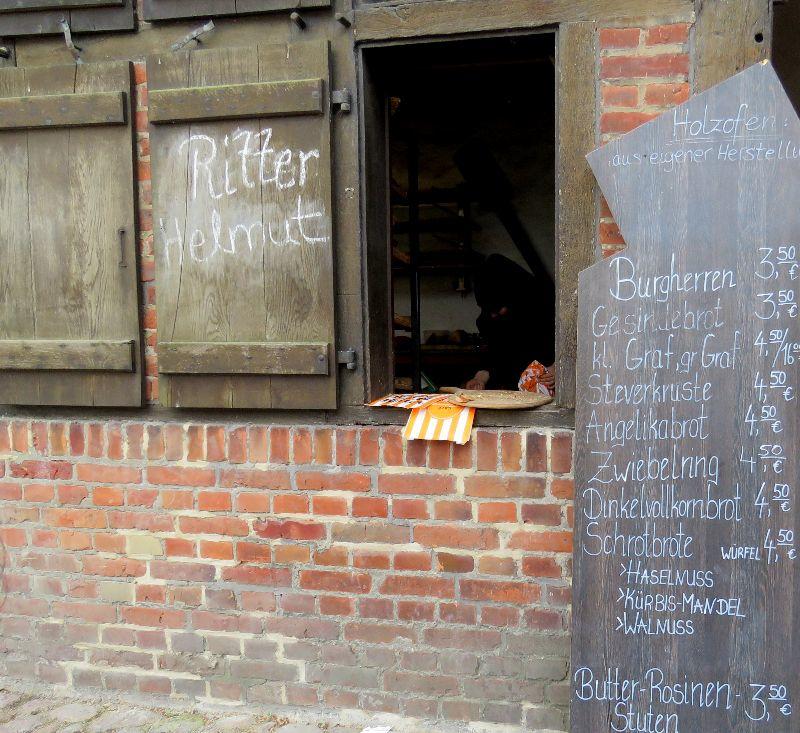 Ritter
Helmut
Holzofen
aus eigener Herstellu
Burgherren 3,50 €
Gesindebrot 3,50 €
kl. Graf, gr Graf 4,50/16,00
Steverkruste 4,50 €
Angelikabrot 4,50 €
Zwiebelring 4,50 €
Dinkelvollkornbrot 4,50 €
Schrotbrote WÜRFEL 4,50 €
>HASELNUSS
>KÜRBIS-MANDEL
>WALNUSS
Butter-Rosinen- 3,50 €
Stuten